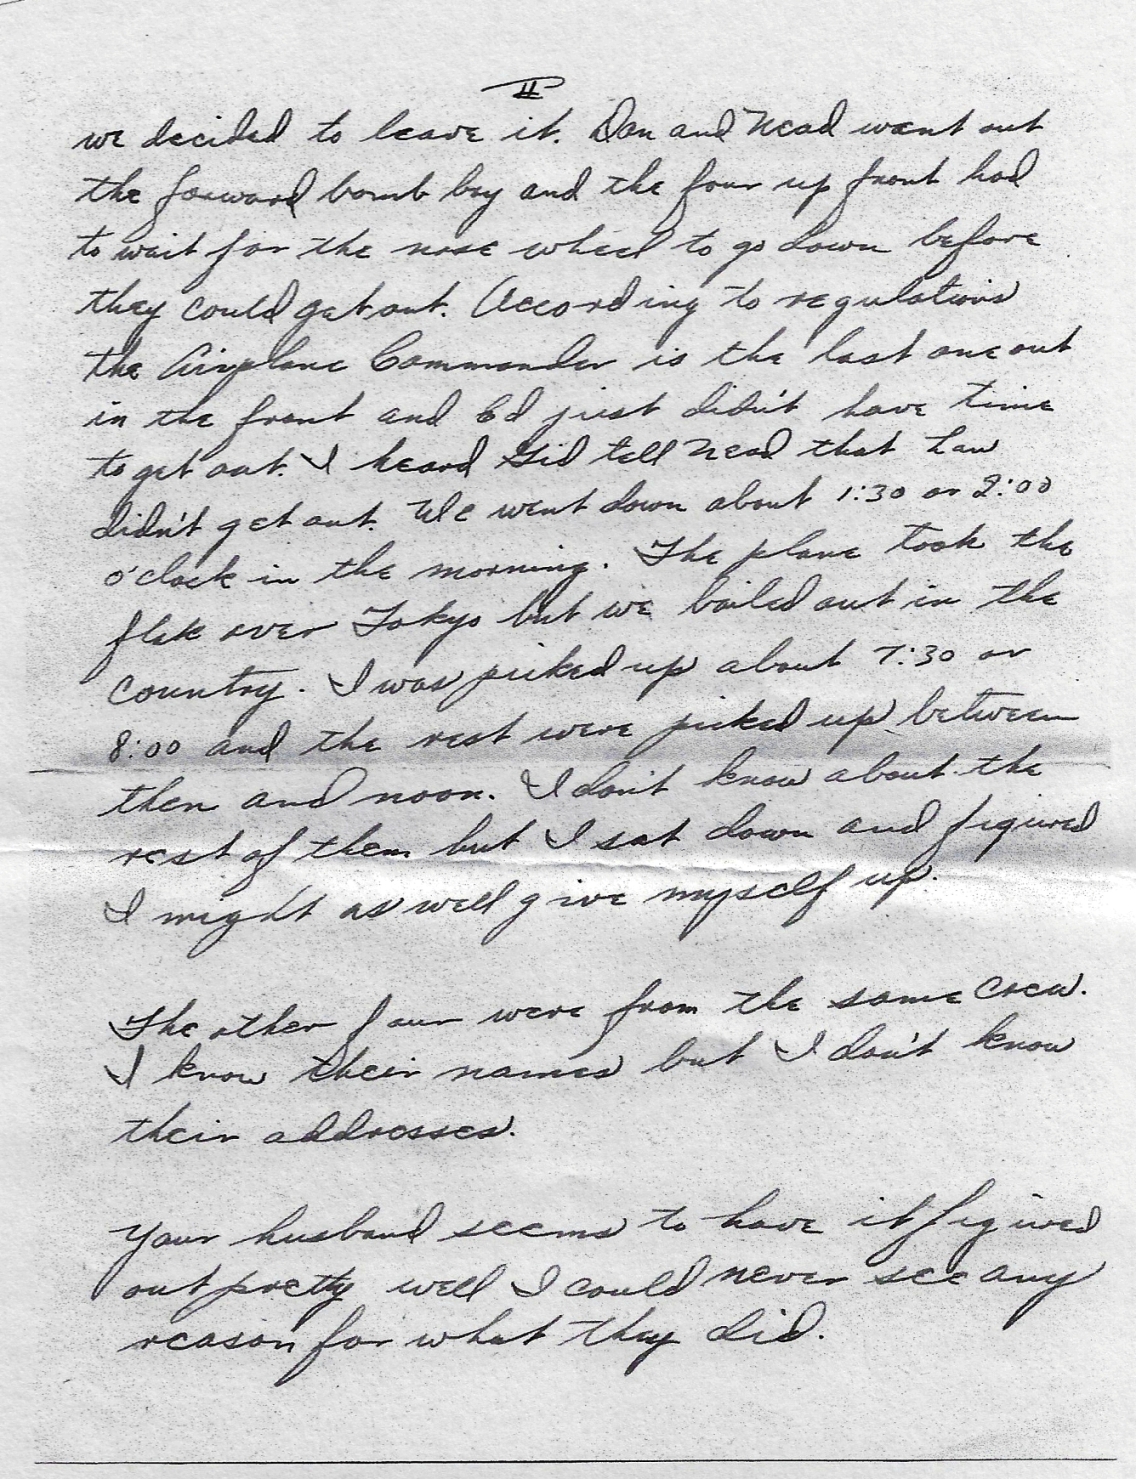 II
we decided to leave it. Dan and Nead went out
the forward bomb bay and the four up front had
to wait for the nose wheel to go down before
they could get out. According to regulations
the Airplane Commander is the last one out
in the front and Ed just didn't have time
to get out. I heard Sid tell Nead that Law
didn't get out. We went down about 1:30 or 2:00
o'clock in the morning. The plane took the
flak over Tokyo but we bailed out in the
country. I was picked up about 7:30 or
8:00 and the rest were picked up between
then and noon. I don't know about the
rest of them but I sat down and figured
I might as well give myself up.
The other four were from the same crew.
I know their names but I don't know
their addresses.
Your husband seems to have it figured
out pretty well I could never see any
reason for what they did.